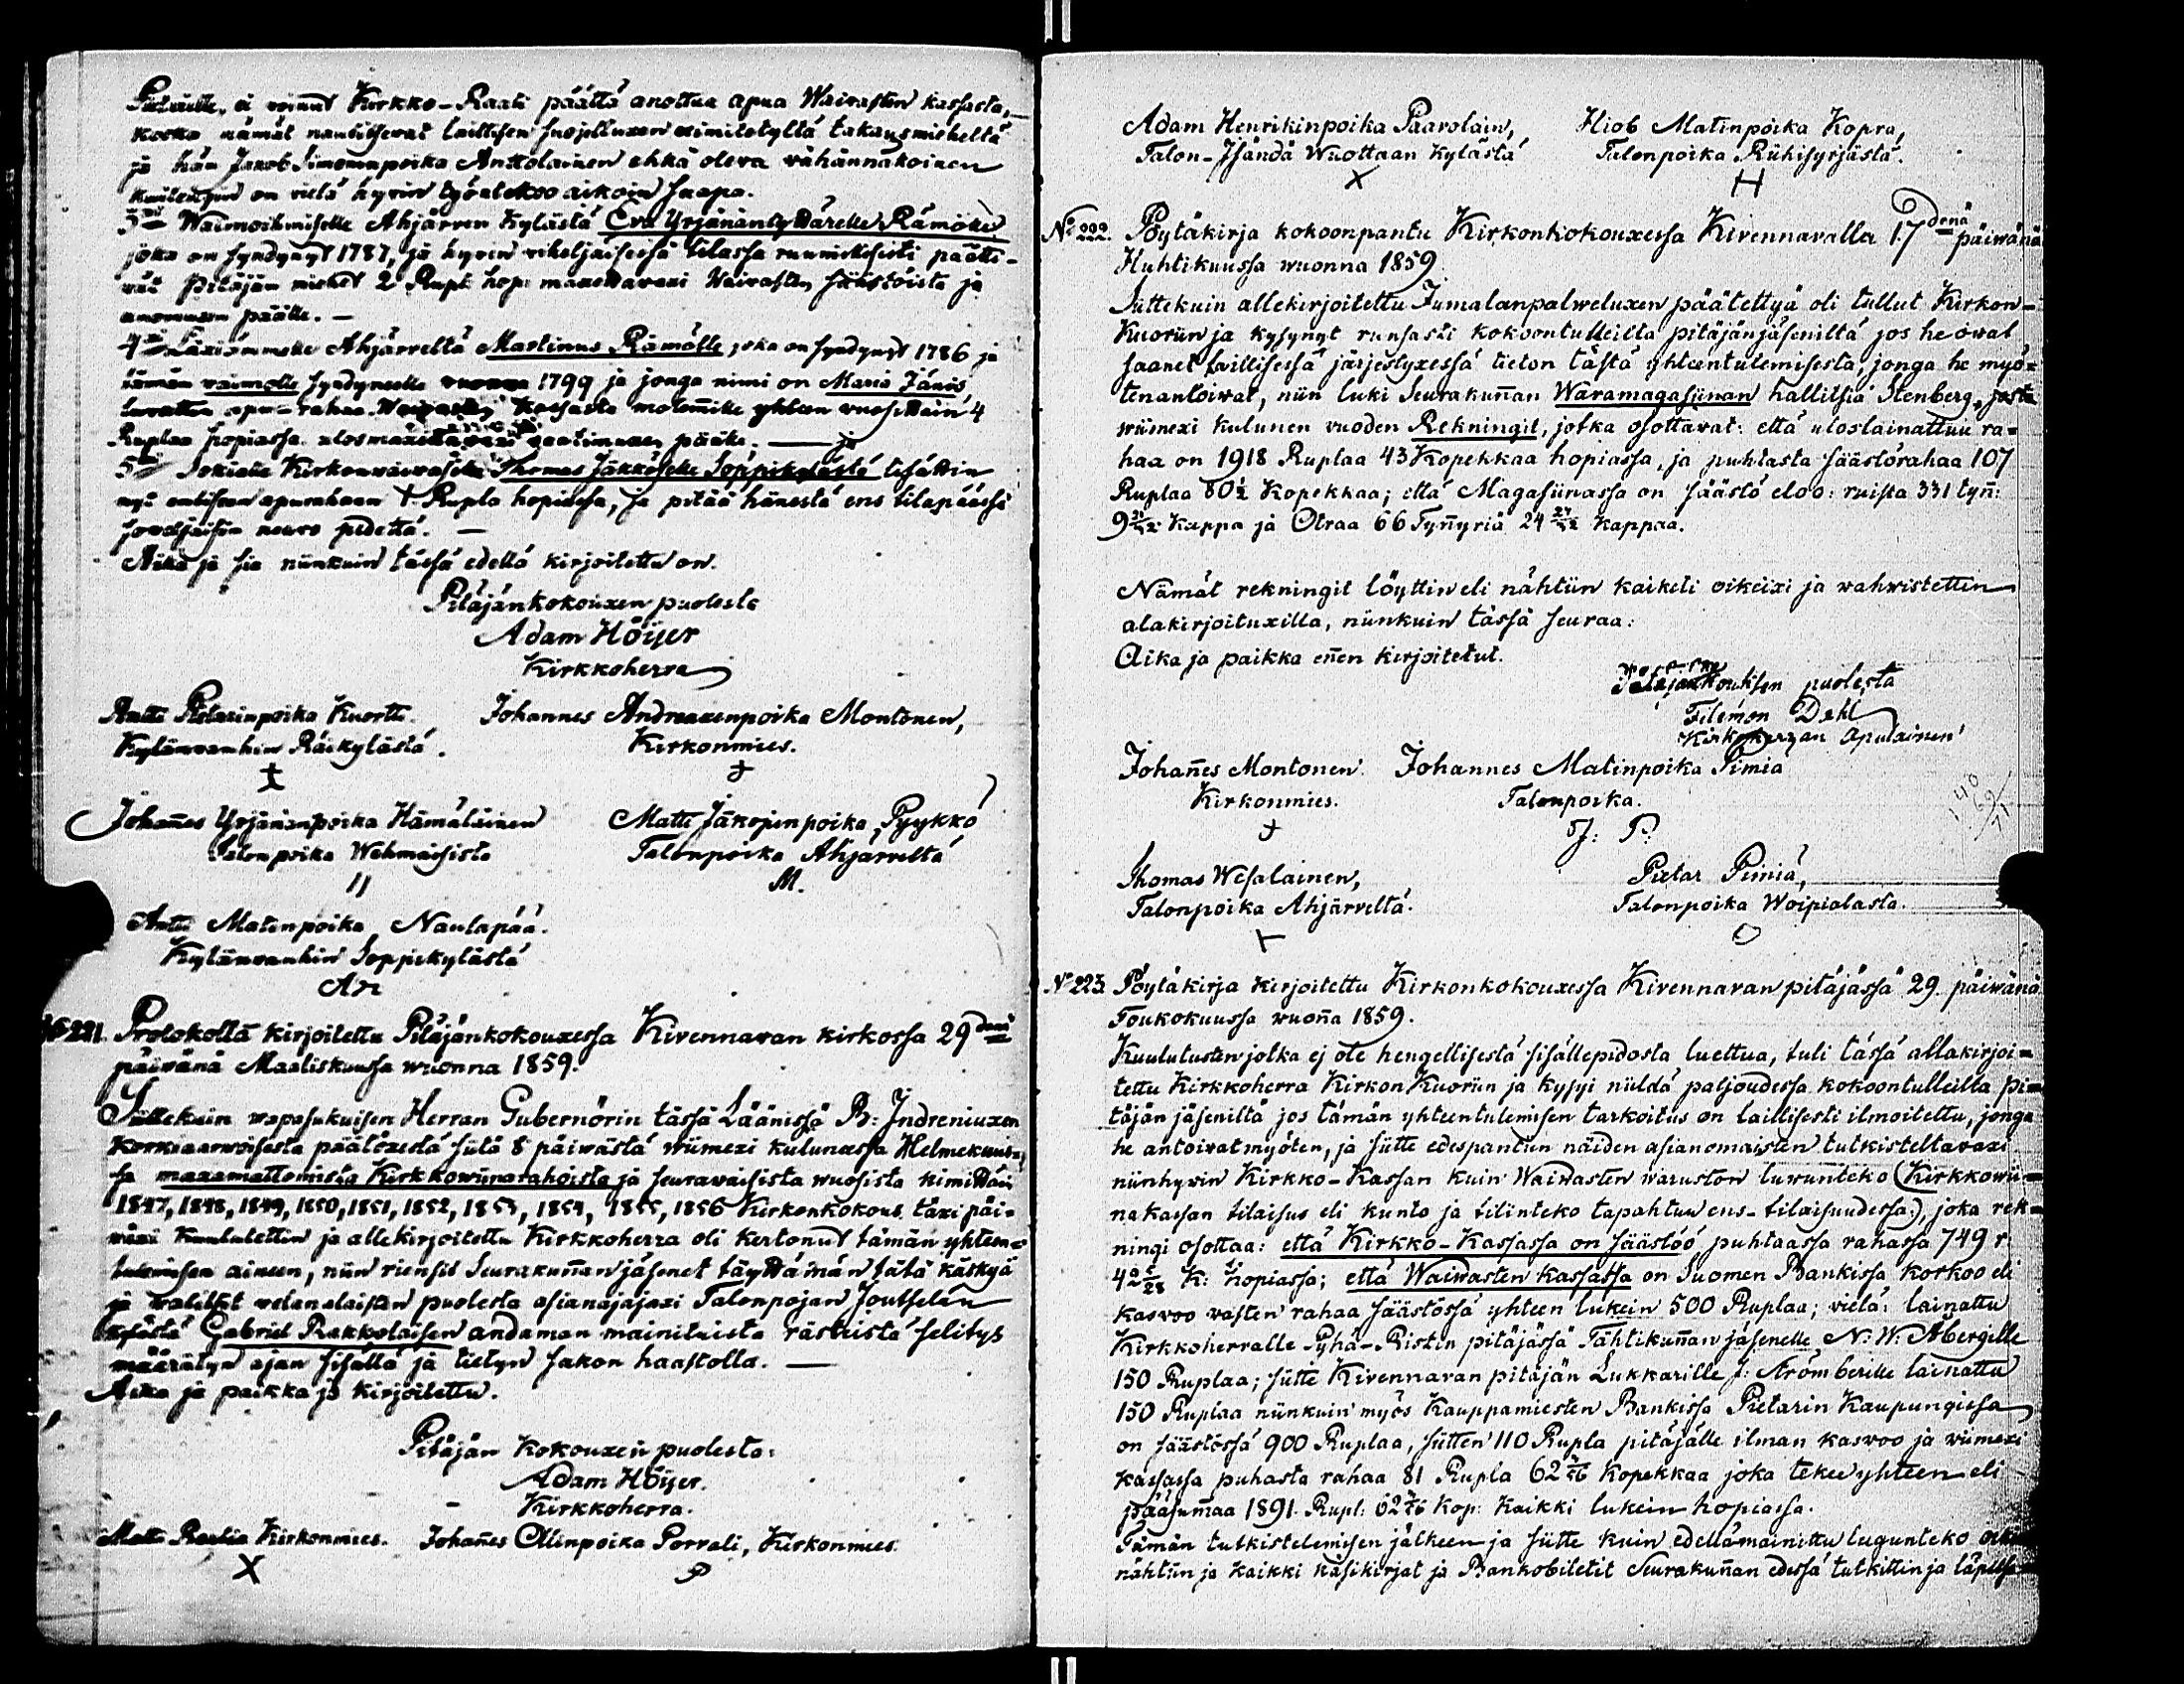 ei woinnut Kirkko-Raati päättä anottua apua Waivasten kassasta,
koska nämät nautitsevat laillisen suojelluxen nimitetyltä takausmieheltä
ja hän Jakob Simonanpoika Anttolainen ehkä oleva vähännäköinen
on vielä hyvin työntekoo aikoin saapa.
3<sup>xi</sup> Waimoihmiselle Ahjärven Kylästä Eva Yrjänäntyttärelle Rämöke
joka on syndynyt 1787, ja hyvin viheljäisessä tilassa ruumillisesti päätti-
vät Pitäjän miehet 2 Rupl: hop: maxettavaxi Waivasten säästöistä ja
päälle. —
4 Ahjärveltä Martinus Rämölle joka on syndynyt 1786 ja
tämän vaimolle syndyneelle vuonna 1799 ja jonga nimi on Maria Jänis
apu-rahaa Waivasten Kassasta molemille yhteen vuosittain 4
Ruplaa hopiassa ulosmaxettavaxi vaatimuxen päälle. — ja
5 Sokialle Kirkonvaivaiselle Thomas Jäkköselle Soppikylästä lisättin
nyt entiseen apurahaan 1 Rupla hopiassa, ja pitää hänestä ens tilapäässä
neuvo pidettä. —
Aika ja sia niinkuin tässä edellä kirjoitettu on.
Pitäjänkokouxen puolesta
Adam Höijer
Kirkkoherra
Antti Pietarinpoika Kuortti. Johannes Andreaxenpoika Montonen,
Kylänvanhin Räikylästä. Kirkonmies.
Johañes Yrjänänpoika Hämäläinen Matti Jäkopinpoika, Pyykkö
Talonpoika Wehmaisista Talonpoika Ahjärveltä
II M.
Antti Matinpoika Naulapää.
Kylänvanhin Soppikylästä
N<sup>o</sup> 221. Protokolla kirjoitettu Pitäjänkokouxessa Kivennavan kirkossa 29<sup>denä</sup>
päivänä Maaliskuussa vuonna 1859.
Sittekuin vapasukuisen Herran Gubernörin tässä Läänissä B: Indreniuxen
Korkiaarvoisesta päätöxestä siitä 8 päivästä viimexi kuluneessa Helmekuussa
ja maxamattomista Kirkkoviinarahoista ja seuravaisista vuosista kimittäin
1847, 1848, 1849, 1850, 1851, 1852, 1853, 1854, 1855, 1856 Kirkonkokous täxi päi-
växi Kuulutettin ja allekirjoitettu Kirkkoherra oli kertonut tämän yhteen-
tulemisen aineen, niin riensit Seurakuñan jäsenet täyttämän tätä käskyä
ja valitsit velanalaisten puolesta asianajajaxi Talonpojan Joutselän
kylästä Gabriel Rakkolaisen andaman mainituista rästeistä selitys
määrätyn ajan sisällä ja tietyn sakon haastolla. —
Aika ja paikka ja kirjoitettu.
Pitäjän Kokouxen puolesta:
Adam Höijer.
Kirkkoherra.
Matti Kirkonmies. Johañes Ollinpoika Porvali, Kirkonmies.
X P
Adam Henrikinpoika Paavolain, Hiob Matinpoika Kopra,
Talon-Isändä Wuottaan kylästä Talonpoika Riihisyrjästä.
X H
N<sup>o</sup> 222. Pöytäkirja kokoonpantu Kirkonkokouxessa Kivennavalla 17<sup>denä</sup> päivänä
Huhtikuussa vuonna 1859.
Sittekuin allekirjoitettu Jumalanpalweluxen päätettyä oli tullut Kirkon-
Kuoriin ja kysynyt runsasti kokoontulleilta pitäjänjäseniltä jos he ovat
saanet laillisessa järjestyxessä tieton tästä yhteentulemisesta, jonga he myö-
tenantoivat, niin luki Seurakuñan Waramagasiinan hallitsia Stenberg, josta
viimexi kulunen vuoden Rekningit, jotka osottavat: että uloslainattuu ra-
haa on 1918 Ruplaa 43 Kopekkaa hopiassa, ja puhtasta säästörahaa 107
Ruplaa 80½ Kopekkaa; että Magasiinassa on säästö eloo: ruista 331 tyñ:
9 kappa ja Otraa 66 Tyñyriä 24 kappaa.
Nämät rekningit löyttin eli nähtiin kaikeli oikeixi ja vahwistettin
alakirjoituxilla, niinkuin tässä seuraa:
Aika ja paikka eñen kirjoitetut.
Pitäjänkouksen puolesta
Filemon Dahl
Kirkoherran Apulainen
Johañes Montonen. Johannes Matinpoika Pimiä
Kirkonmies. Talonpoika.
J: P:
140
69
71
Thomas Wesalainen, Pietar Pimiä,
Talonpoika Ahjärveltä. Talonpoika Woipialasta.
N<sup>o</sup> 223. Pöytäkirja kirjoitettu Kirkonkokouxessa Kivennavan pitäjässä 29. päivänä
Toukokuussa vuoña 1859.
Kuulutusten jotka ej ole hengellisestä sisällepidosta luettua, tuli tässä allakirjoi-
tettu Kirkkoherra Kirkon Kuoriin ja kysyi niildä paljoudessa kokoontulleilta pi-
täjän jäseniltä jos tämän yhteentulemisen tarkoitus on laillisesti ilmoitettu, jonga
he antoivat myöten, ja siitte edespantiin näiden asianomaisten tutkisteltavaxi
niinhyvin Kirkko-Kassan kuin Waivasten varuston luvunteko (Kirkkovii-
nakassan tilaisus eli kunto ja tilinteko tapahtuu ens-tilaisuudessa:), joka rek-
ningi osottaa: että Kirkko-Kassassa on säästöö puhtaassa rahassa 749 r:
42 K: hopiassa; että Waivasten kassassa on Suomen Bankissa korkoo eli
kasvoo vasten rahaa säästössä yhteen lukein 500 Ruplaa; vielä: lainattu
Kirkkoherralle Pyhä-Ristin pitäjässä Tähtikuñan jäsenelle N: W: Åbergille
150 Ruplaa; siitte Kivennavan pitäjän Lukkarille J: Strömberille lainattu
150 Ruplaa niinkuin myös Kauppamiesten Bankissa Pietarin Kaupungissa
on säästössä 900 Ruplaa, siitten 110 Rupla pitäjälle ilman kasvoo ja viimexi
kassassa puhasta rahaa 81 Rupla 62 Kopekkaa joka tekee yhteen eli
pääsummaa 1891. Rupl: 62 Kop: Kaikki lukein hopiassa.
Tämän tutkistelemisen jälkeen ja siitte kuin edellämainittu lugunteko
nähtiin ja kaikki käsikirjat ja Bankobiletit Seurakuñan edessä tutkittin ja